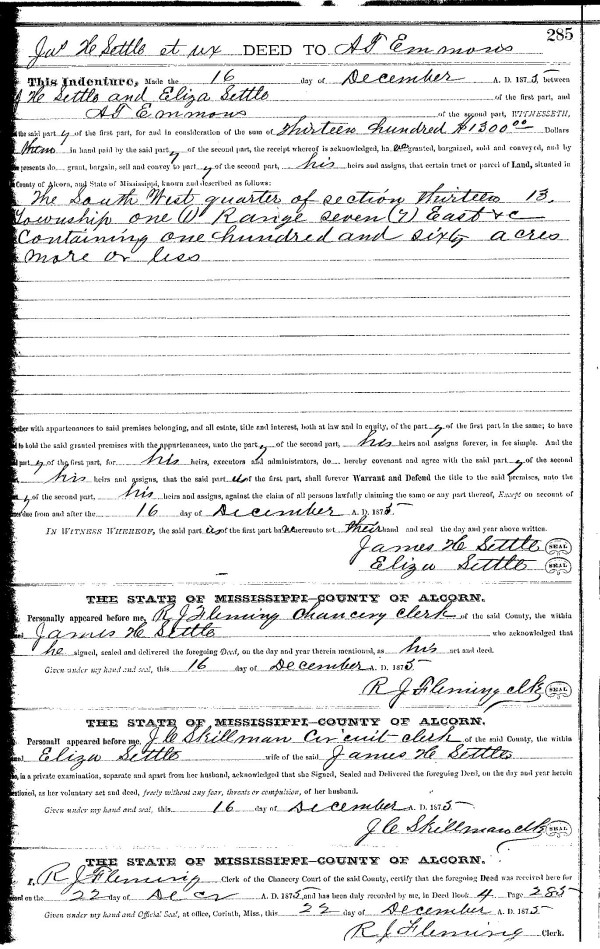 285
Jas H Settle et ux DEED TO A T Emmons
This Indenture, Made the 16 day of December A. D. 1875, between
H Settle and Eliza Settle of the first part, and
A T Emmons of the second part, WITNESSETH,
the said party of the first part, for and in consideration of the sum of thirteen hundred $1300 00 Dollars
them in hand paid by the said party of the second part, the receipt whereof is acknowledged, have granted, bargained, sold and conveyed, and by
presents do grant, bargain, sell and convey to party of the second part, his heirs and assigns, that certain tract or parcel of Land, situated in
County of Alcorn, and State of Mississippi, known and described as follows:
The South West quarter of section thirteen 13,
Township one (1) Range seven (7) East &c
Containing one hundred and sixty acres
more or less
together with appurtenances to said premises belonging, and all estate, title and interest, both at law and in equity, of the party of the first part in the same; to have
to hold the said granted premises with the appurtenances, unto the party of the second part, his heirs and assigns forever, in fee simple. And the
party of the first part, for his heirs, executors and administrators, do hereby covenant and agree with the said party of the second
his heirs and assigns, that the said part of the first part, shall forever Warrant and Defend the title to the said premises, unto the
y of the second part, his heirs and assigns, against the claim of all persons lawfully claiming the same or any part thereof, Except on account of
due from and after the 16 day of December A. D. 1875.
IN WITNESS WHEREOF, the said part of the first part have hereunto set their hand and seal the day and year above written.
James H Settle SEAL
Eliza Settle SEAL
THE STATE OF MISSISSIPPI—COUNTY OF ALCORN.
Personally appeared before me, R J Fleming Chancery Clerk of the said County, the within
James H Settle who acknowledged that
he signed, sealed and delivered the foregoing Deed, on the day and year therein mentioned, as his act and deed.
Given under my hand and seal, this 16 day of December A. D. 1875
R J Fleming clk SEAL
THE STATE OF MISSISSIPPI—COUNTY OF ALCORN.
Personally appeared before me J C Skillman Circuit clerk of the said County, the within
Eliza Settle wife of the said James H Settle
in a private examination, separate and apart from her husband, acknowledged that she Signed, Sealed and Delivered the foregoing Deed, on the day and year herein
mentioned, as her voluntary act and deed, freely without any fear, threats or compulsion, of her husband.
Given under my hand and seal, this 16 day of December A. D. 1875
J C Skillman clk SEAL
THE STATE OF MISSISSIPPI—COUNTY OF ALCORN.
I, R J Fleming Clerk of the Chancery Court of the said County, certify that the foregoing Deed was received here for
record on the 22 day of Decr A. D. 1875, and has been duly recorded by me, in Deed Book 4 Page 285
Given under my hand and Official Seal, at office, Corinth, Miss., this 22 day of December A. D. 1875
R J Fleming Clerk.